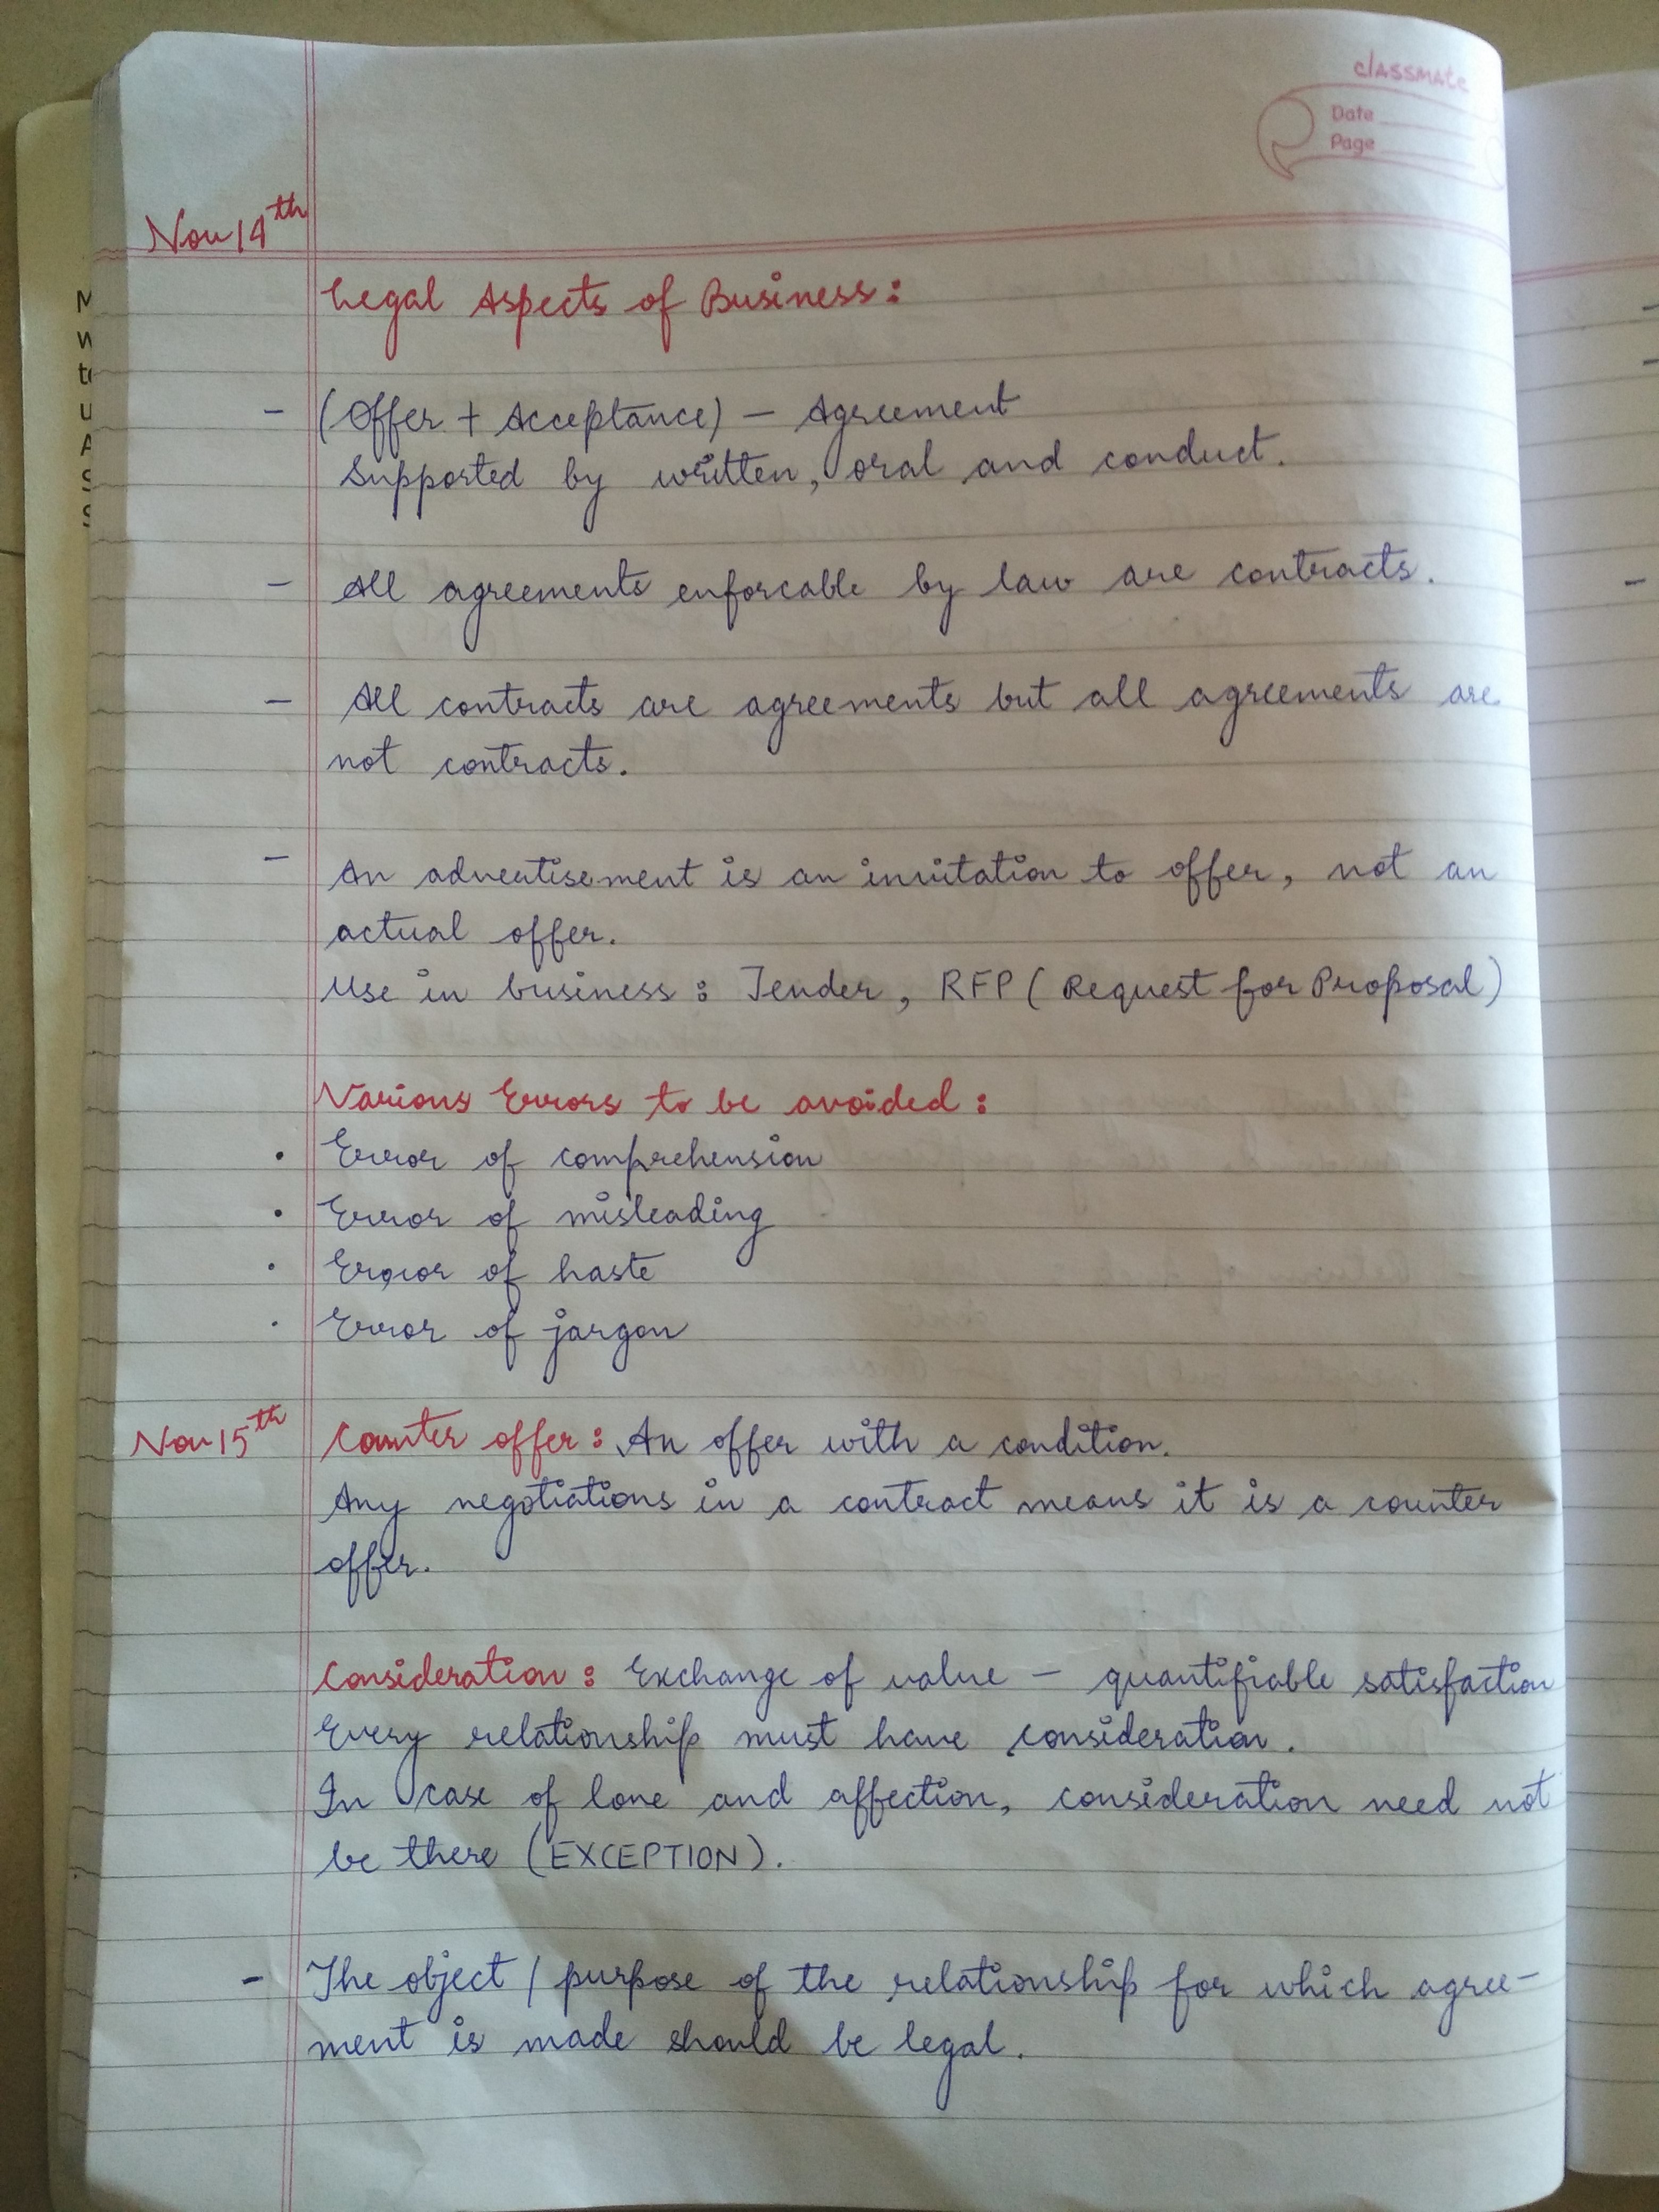 classmate
Date
Page
Nov 14th
Legal Aspects of Business:
- (Offer + Acceptance) - Agreement
Supported by written, oral and conduct.
- All agreements enforcable by law are contracts.
- All contracts are agreements but all agreements are
not contracts.
- An advertisement is an invitation to offer, not an
actual offer.
Use in business: Tender, RFP (Request for Proposal)
Various Errors to be avoided:
• Error of comprehension
• Error of misleading
• Error of haste
• Error of jargon
Nov 15th
Counter offer: An offer with a condition.
Any negotiations in a contract means it is a counter
offer.
Consideration: Exchange of value - quantifiable satisfaction
Every relationship must have consideration.
In case of love and affection, consideration need not
be there (EXCEPTION).
- The object / purpose of the relationship for which agree-
ment is made should be legal.